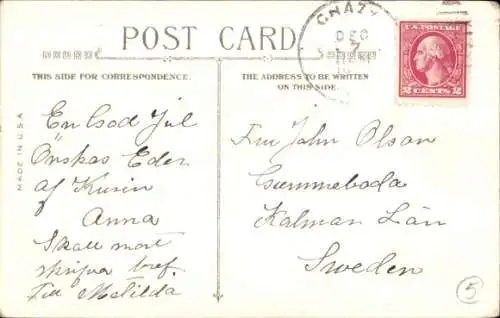 POST CARD
THIS SIDE FOR CORRESPONDENCE.
THE ADDRESS TO BE WRITTEN
ON THIS SIDE.
MADE IN U.S.A
CHAZY
DEC
7
U.S. POSTAGE
2 CENTS 2
En Good Jul
Önskas Eder
af Kusin
Anna
Skall
skrifva bref.
Till Matilda
John Olson
Gummeboda
Kalmar Län
Sweden
5